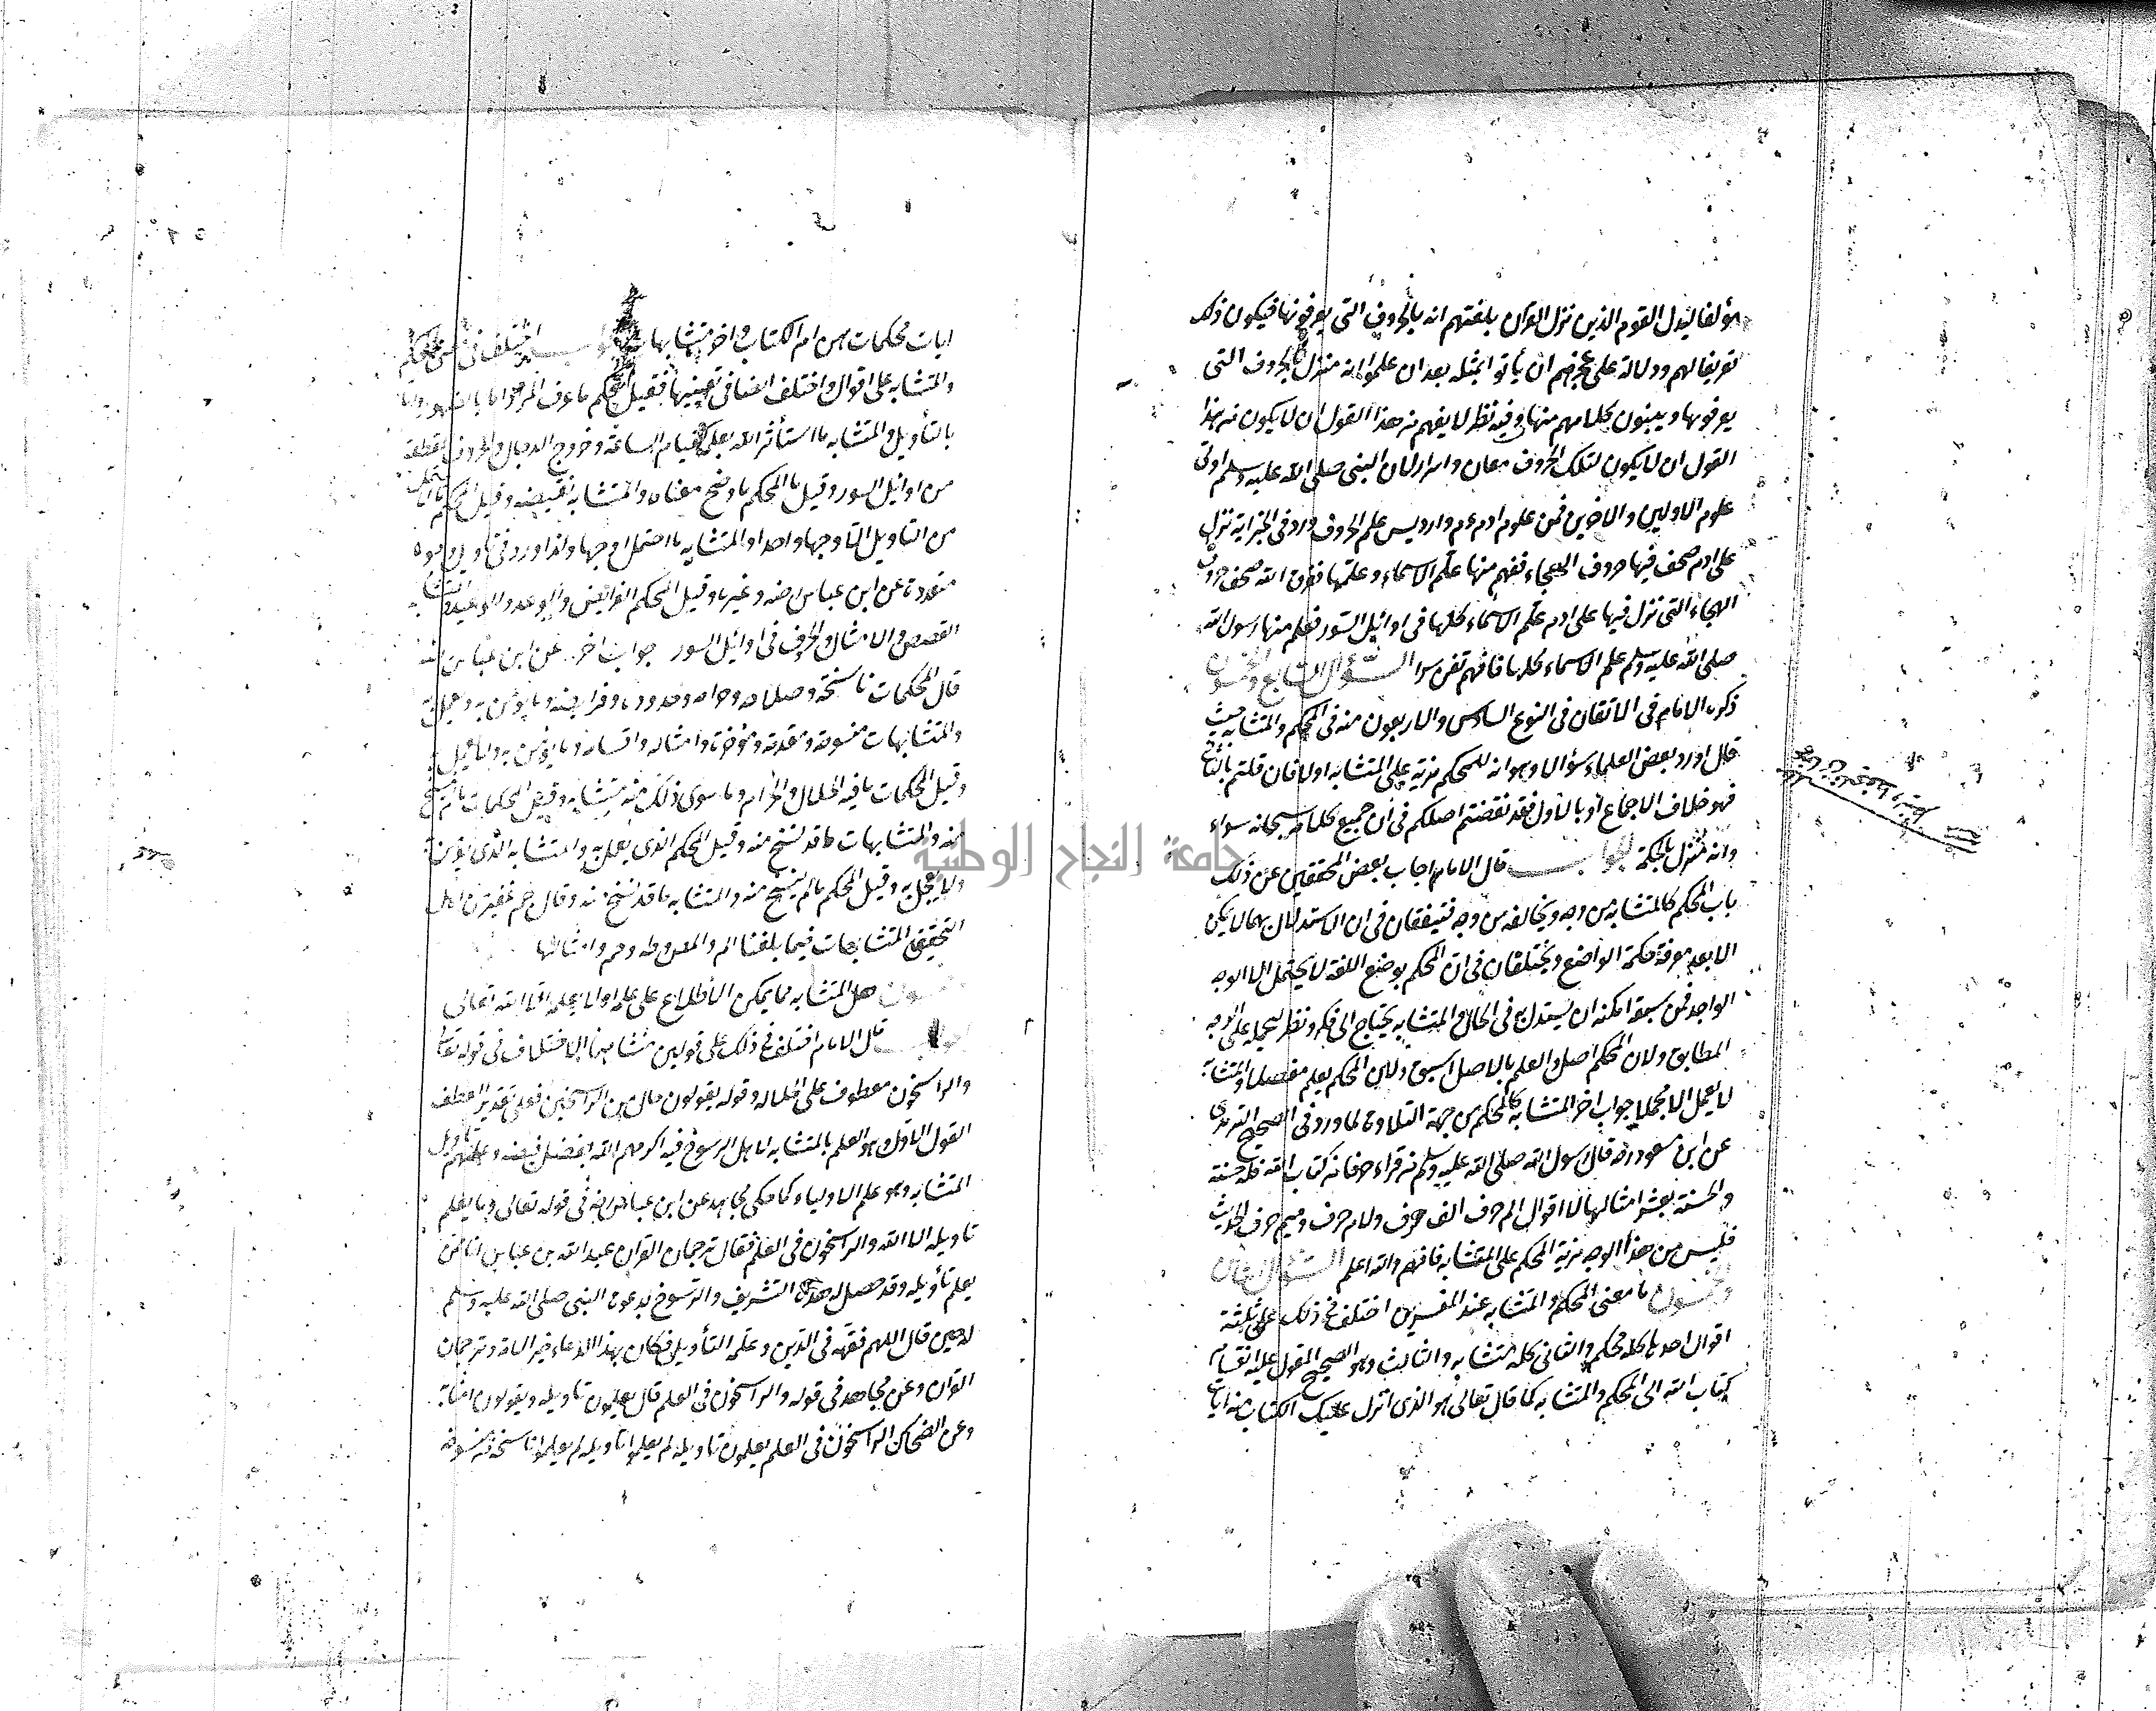 مؤلفا ليدل القوم الذين نزل القرآن بلغتهم انه بالحروف التي يعرفونها فيكون ذلك
تعريفا لهم ودلالة على عجزهم ان يأتوا بمثله بعد ان علموا انه منزل بالحروف التي
يعرفونها ويبنون كلامهم منها وفيه نظر لا يفهم من هذا القول ان لا يكون من هذا
القول ان لا يكون لتلك الحروف معان واسرار لان النبي صلى الله عليه وسلم اوتى
علوم الاولين والاخرين فمن علوم ادم وادريس علم الحروف ورد في الخبر انه نزل
على ادم صحف فيها حروف الهجاء ففهم منها علم الاسماء وعلمها فوق الله صحف حروف
الهجاء التي نزل فيها على ادم علم الاسماء كلها في اوائل السور فعلم منها رسول الله
صلى الله عليه وسلم علم الاسماء كلها فافهم تغن سرا السؤال السابع والخمسون
ذكره الامام في الاتقان في النوع السادس والاربعون منه في المحكم والمتشابه حيث
قال اورد بعض العلماء سؤالا وهو انه للمحكم مزية على المتشابه اولا فان قلتم بالثاني
فهو خلاف الاجماع او بالاول فقد نقضتم اصلكم في ان جميع كلامه سبحانه سواء
وانه منزل بالحكمة الجواب قال الامام اجاب بعض المحققين عن ذلك
بان المحكم كالمتشابه من وجه ويخالفه من وجه فيتفقان في ان الاستدلال بهما لا يمكن
الا بعد معرفة حكمة الواضع ويختلفان في ان المحكم بوضع اللغة لا يحتمل الا الوجه
الواحد فمن سمعه امكنه ان يستدل به في الحال والمتشابه يحتاج الى فكر ونظر ليحمله على الوجه
المطابق ولان المحكم اصل والعلم بالاصل اسبق ولان المحكم يعلم مفصلا والمتشابه
لا يعمل الا مجملا جواب اخر المتشابه كالمحكم من جهة التلاوة لما ورد في الصحيح الترمذي
عن ابن مسعود رضه قال رسول الله صلى الله عليه وسلم من قراء حرفا من كتاب الله فله حسنة
والحسنة بعشر امثالها لا اقول الم حرف الف حرف ولام حرف وميم حرف الحديث
فليس من هذا الوجه مزية المحكم على المتشابه فافهم والله اعلم السؤال الثامن
والخمسون ما معنى المحكم والمتشابه عند المفسرين اختلف في ذلك على ثلثة
اقوال احدها كله محكم والثاني كله متشابه والثالث وهو الصحيح المقول عليه انقسام
كتاب الله الى المحكم والمتشابه كما قال تعالى هو الذي انزل عليك الكتاب منه ايات
ايات محكمات هن ام الكتاب واخر متشابهات اختلف في المحكم
والمتشابه على اقوال واختلف ايضا في تعيينها فقيل المحكم ما عرف المراد اما بالظهور واما
بالتأويل والمتشابه ما استأثر الله بعلمه كقيام الساعة وخروج الدجال والحروف المقطعة
من اوائل السور وقيل المحكم ما وضح معناه والمتشابه نقيضه وقيل المحكم ما لا يحتمل
من التاويل الا وجها واحدا والمتشابه ما احتمل اوجها ولذا ورد في تاويل وجوه
متعددة عن ابن عباس رضه وغيره وقيل المحكم الفرائض والوعد والوعيد والمتشابه
القصص والامثال والحرف في اوائل السور جواب اخر عن ابن عباس رضه
قال المحكمات ناسخة وحلاله وحرامه وحدوده وفرايضه وما يؤمن به ويعمل به
والمتشابهات منسوخه ومقدمه ومؤخره وامثاله واقسامه وما يؤمن به ولا يعمل به
وقيل المحكمات ما فيه الحلال والحرام وما سوى ذلك منه متشابه وقيل المحكمات ما لم ينسخ
منه والمتشابهات ما قد نسخ منه وقيل المحكم الذي يعمل به والمتشابه الذي يؤمن به
ولا يعمل به وقيل المحكم ما لم ينسخ منه والمتشابه ما قد نسخ منه وقال جم غفير من اهل
التحقيق المتشابهات فيما بلغنا الم والمص وطه وحم وامثالها
هل المتشابه مما يمكن الاطلاع على علمه او لا يعلمه الا الله تعالى
قال الامام اختلف في ذلك على قولين منشأهما الاختلاف في قوله تعالى
والراسخون معطوف على الجلاله وقوله يقولون حال من الراسخين فعلى تقدير العطف
القول الاول وهو العلم بالمتشابه لاهل الرسوخ فيه اكرمهم الله بفضل فيضه وعلمهم تاويل
المتشابه وهو علم الاولياء كما حكى مجاهد عن ابن عباس رضه في قوله تعالى وما يعلم
تاويله الا الله والراسخون في العلم فقال ترجمان القران عبد الله بن عباس انا ممن
يعلم تأويله وقد حصل له هذا التشريف والرسوخ بدعوة النبي صلى الله عليه وسلم
له حين قال اللهم فقهه في الدين وعلمه التأويل فكان بهذا الدعاء خير الامة وترجمان
القران وعن مجاهد في قوله والراسخون في العلم قال يعلمون تاويله ويقولون امنا به
وعن الضحاك الراسخون في العلم يعلمون تاويله لم يعلموا تاويله لم يعلموا ناسخه من منسوخه
جامعة النجاح الوطنية